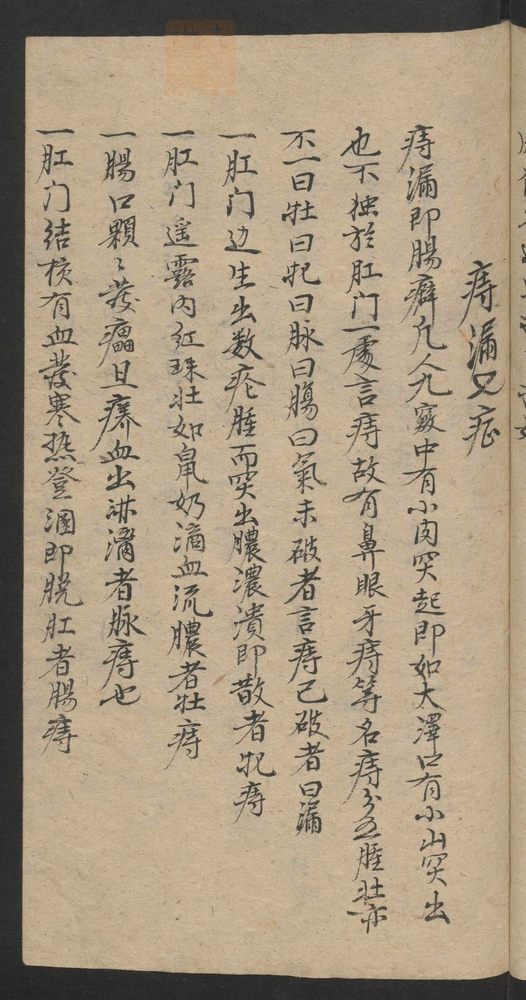 痔漏又症
痔漏即腸癖凡人九竅中有小肉突起即如大澤口有小山突出
也不独於肛门一處言痔故有鼻眼牙痔等名痔分五腫壮亦
不一曰牡曰牝曰脉曰腸曰氣未破者言痔已破者曰漏
一肛门边生出数疙腫而突出膿濃潰即散者牝痔
一肛门遥露肉红珠壮如鼠奶滴血流膿者牡痔
一腸口顆〻發㿈且痒血出淋漓者脉痔也
一肛门结核有血發寒热登溷即脱肛者腸痔